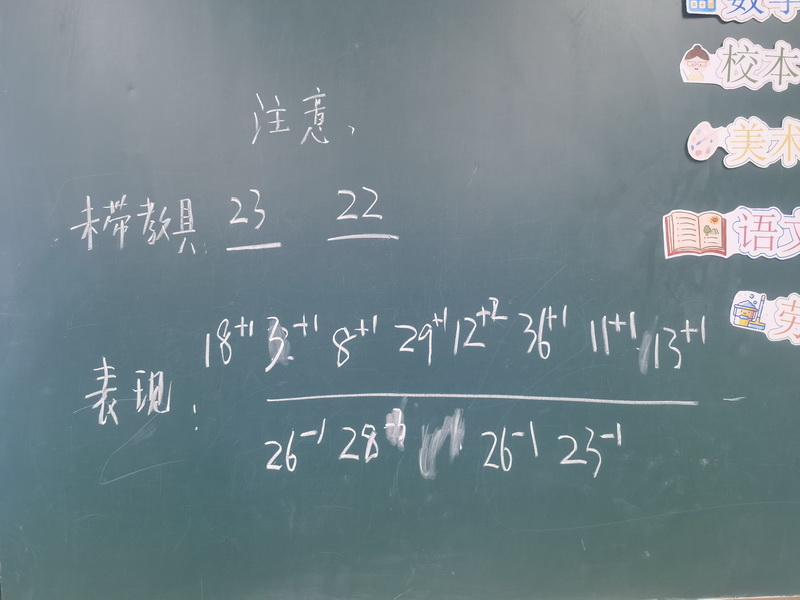 数学
校本
注意、
美术
未带教具: 23 22
语文
18⁺¹ 3⁺¹ 8⁺¹ 29⁺¹ 12⁺² 36⁺¹ 11⁺¹ 13⁺¹
劳
表现:
26⁻¹ 28⁻³ 26⁻¹ 23⁻¹